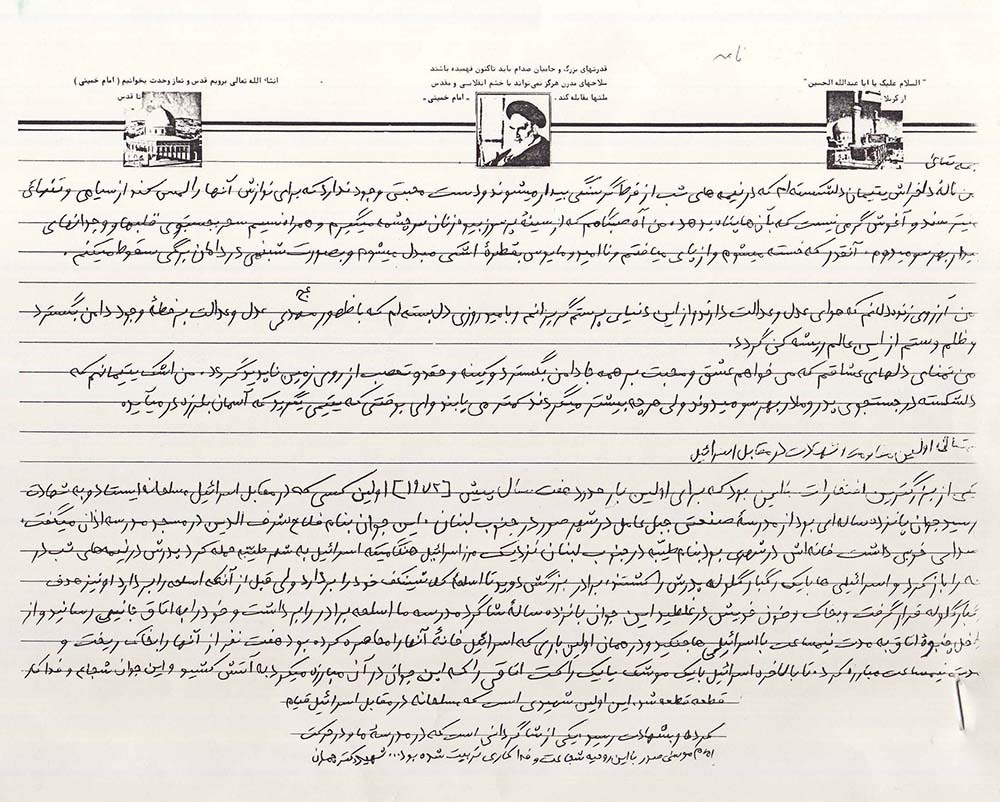 نامه
قدرتهای بزرگ و حامیان صدام باید تاکنون فهمیده باشند
سلاحهای مدرن هرگز نمی‌تواند با خشم انقلابی و مقدس
ملتها مقابله کند. - امام خمینی -
"السلام علیک یا ابا عبدالله الحسین"
از کربلا
انشاء الله تعالی برویم قدس و نماز وحدت بخوانیم (امام خمینی)
تا قدس
بسمه تعالی
من نالهٔ دلخراش یتیمان دلشکسته‌ام که در نیمه های شب از فرط گرسنگی بیدار میشوند و دست محبتی وجود ندارد که برای نوازش آنها را لمس کند از سیاهی و تنهائی
میترسند و آغوش گرمی نیست که به آنها پناه بدهد، من آه صبحگاهم که از سینهٔ پرسوز بیوه زنان سرچشمه میگیرم و همراه نسیم سحر بجستجوی قلبها و وجدانهای
بیدار بهر سو میدوم، آنقدر که خسته میشوم و از پای میافتم و ناامید و مایوس بقطرهٔ اشکی مبدل میشوم و بصورت شبنمی در دامن برگی سقوط میکنم.
من آرزوی زنده دلانم که هوای عدل و عدالت دارند از این دنیای پر ستم گریزانم و بامید روزی دل بسته‌ام که با ظهور مهدی عج عدل و عدالت بر خطهٔ وجود دامن بگسترد
و ظلم و ستم از این عالم ریشه کن گردد.
من تمنای دلهای عشاقم که می خواهم عشق و محبت بر همه جا دامن بگسترد و کینه و حقد و تعصب از روی زمین ناپدید گردد. من اشک یتیمانم که
دلشکسته در جستجوی پدر و مادر بهر سو میدوند ولی هر چه بیشتر میگردند کمتر می یابند وای بوقتی که یتیمی بگرید که آسمان بلرزه در میآید
اولین در مقابل اسرائیل
یکی از بزرگترین افتخارات ما این بود که برای اولین بار حدود هفت سال پیش [۱۹۷۲] اولین کسی که در مقابل اسرائیل مسلحانه ایستاد و به شهادت
رسید جوان پانزده ساله ای بود از مدرسهٔ صنعتی جبل عامل در شهر صور در جنوب لبنان. این جوان بنام فلاح شرف الدین در مسجد مدرسه اذان میگفت،
صدایی خوبی داشت خانه‌اش در شهری بود بنام طیبه در جنوب لبنان نزدیک مرز اسرائیل هنگامیکه اسرائیل به شهر طیبه حمله کرد پدرش در نیمه‌های شب در
خانه را باز کرد و اسرائیلی ها با یک رگبار گلوله پدرش را کشتند، برادر بزرگش دوید تا اسلحه کلاشینکف خود را بردارد ولی قبل از آنکه اسلحه را بردارد او نیز هدف
رگبار گلوله قرار گرفت و بخاک و خون خویش در غلطید این جوان پانزده سالهٔ شاگرد مدرسه ما اسلحه برادر را برداشت و خود را به اتاق جانبی رسانید و از
داخل پنجرهٔ اتاق به مدت نیمساعت با اسرائیلی‌ها جنگید و در همان اولین باری که اسرائیل خانهٔ آنها را محاصره کرده بود هفت نفر از آنها را بخاک ریخت و
نیمساعت مبارزه کرد، تا بالاخره اسرائیل با یک موشک یا یک راکت اتاقی را که این جوان در آن مبارزه میکرد به آتش کشید و این جوان شجاع و فداکار
قطعه قطعه شد. این اولین شهیدی است که مسلحانه در مقابل اسرائیل قیام
کرده و بشهادت رسید، یکی از شاگردانی است که در مدرسهٔ ما و در حرکت
امام موسی صدر با این روحیه شجاعت و فداکاری تربیت شده بود... شهید دکتر چمران